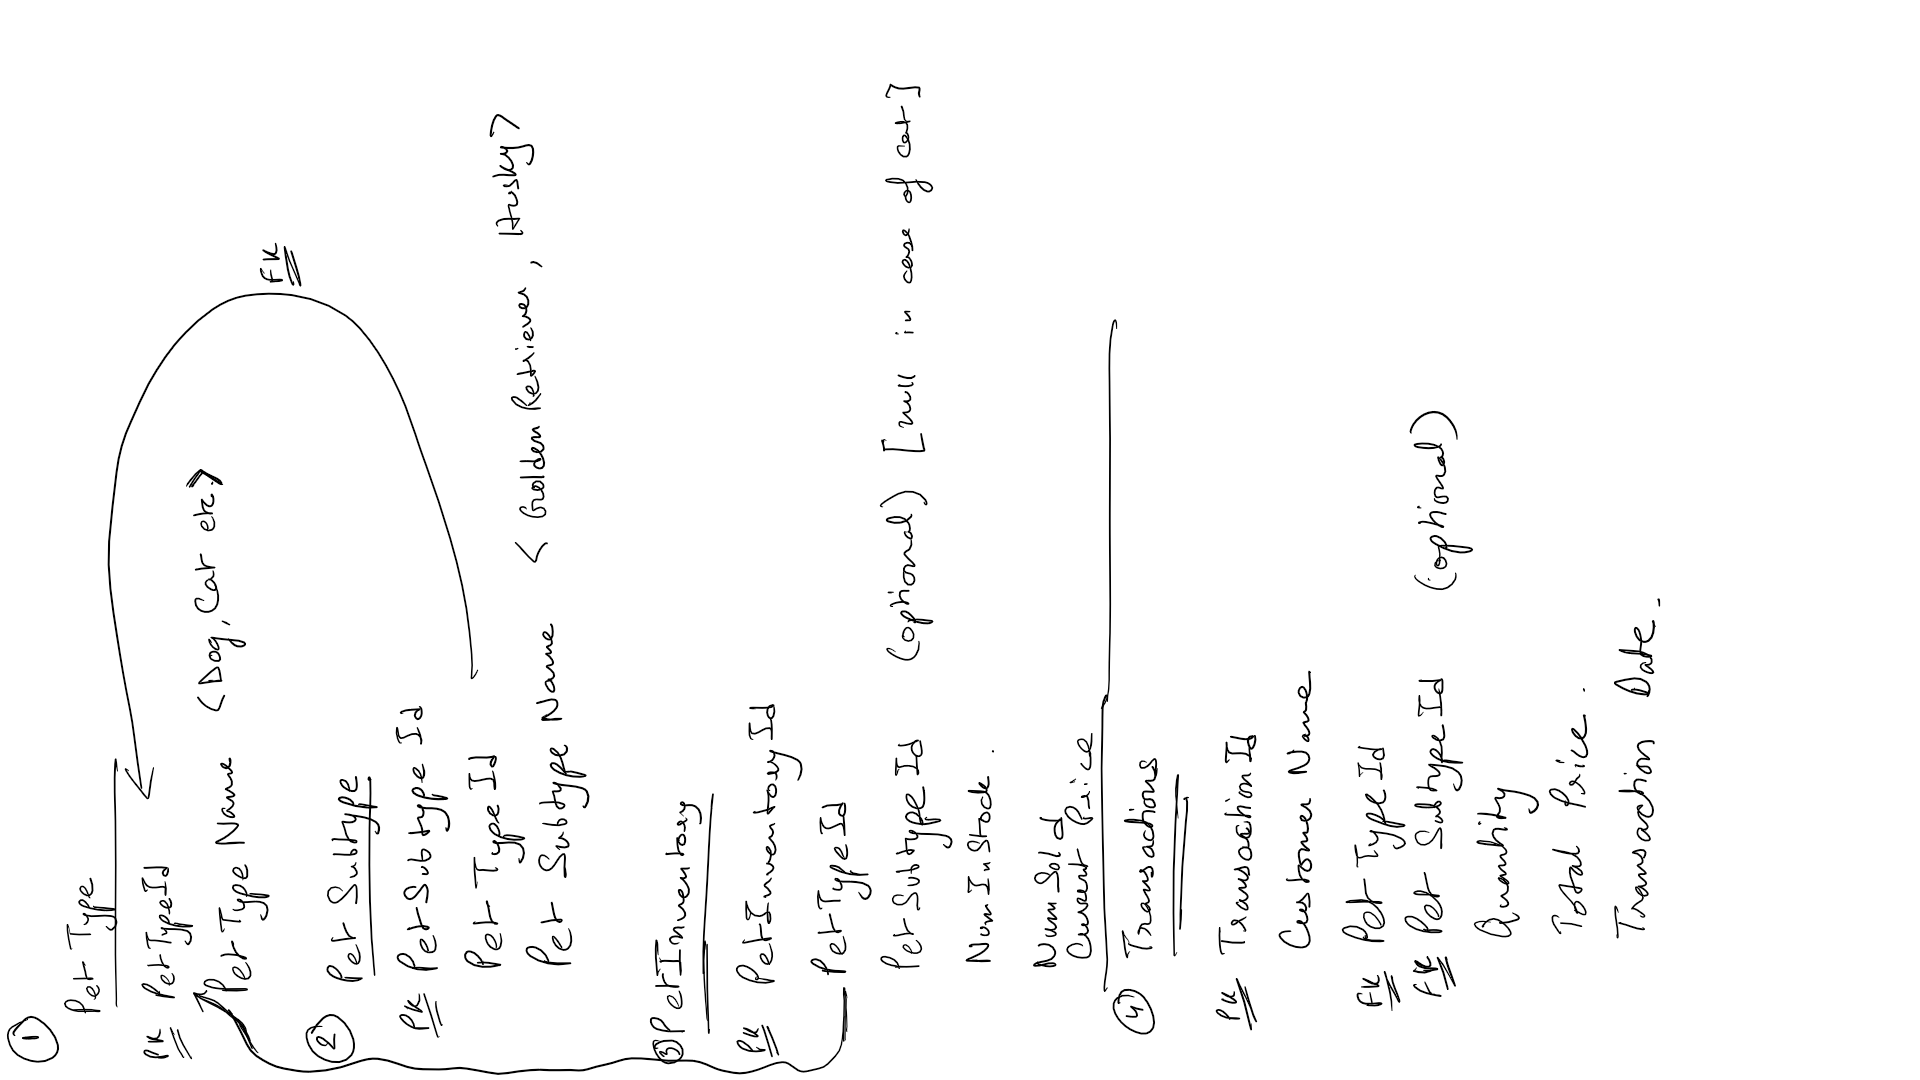 ① Pet Type
PK PetTypeId
PetType Name <Dog, Cat etc.>
FK
② Pet Subtype
PK PetSubtype Id
Pet Type Id
Pet Subtype Name < Golden Retriever, Husky>
③ PetInventory
PK PetInventory Id
PetTypeId
PetSubtype Id (optional) [null in case of cat]
NumInStock.
NumSold
Current Price
④ Transactions
PK TransactionId
Customer Name
FK Pet Type Id
FK Pet Subtype Id (optional)
Quantity
Total Price.
Transaction Date.